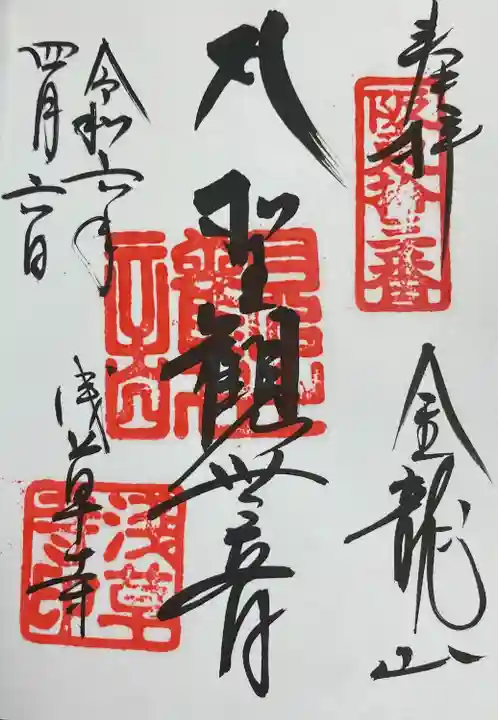 奉拝
坂東拾三番
金龍山
聖観世音
令和六年
四月六日
浅草寺
浅草寺印